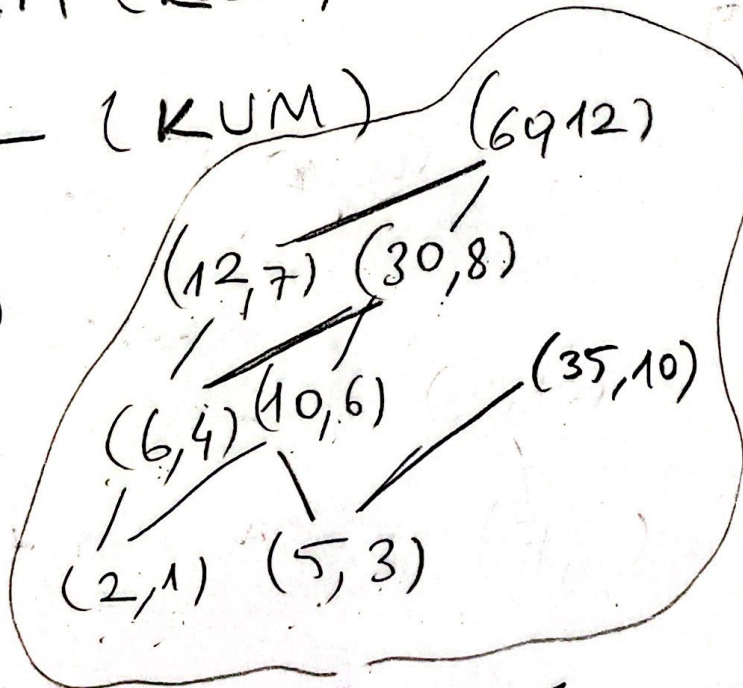 (KUM)
(60,12)
(12,7) (30,8)
(35,10)
(6,4) (10,6)
(2,1) (5,3)